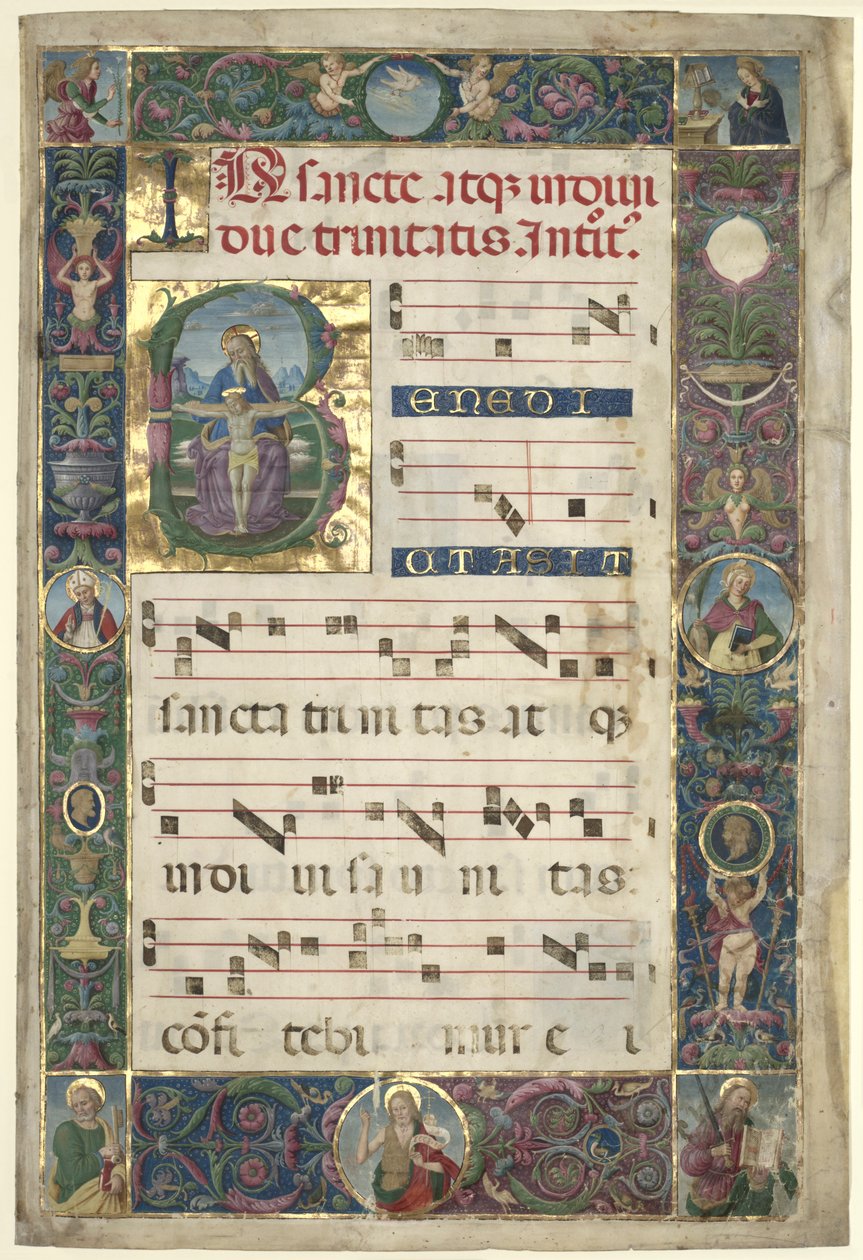 IN sancte atqꝫ indiui
due trinitatis. Intoit
BENEDI
CTA SIT
sancta trini tas at qꝫ
indi ui sa u ni tas:
cōfi tebi mur e i